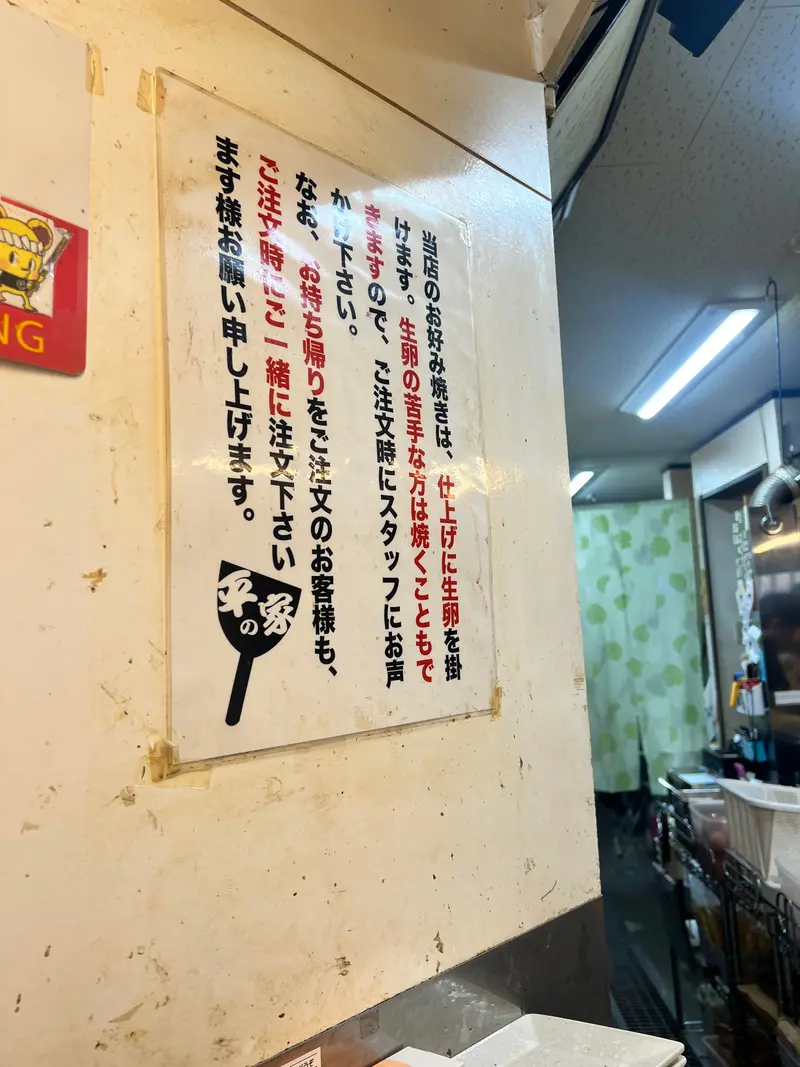 当店のお好み焼きは、仕上げに生卵を掛
けます。生卵の苦手な方は焼くこともで
きますので、ご注文時にスタッフにお声
かけ下さい。
なお、お持ち帰りをご注文のお客様も、
ご注文時にご一緒に注文下さい
ます様お願い申し上げます。
平の家
NG